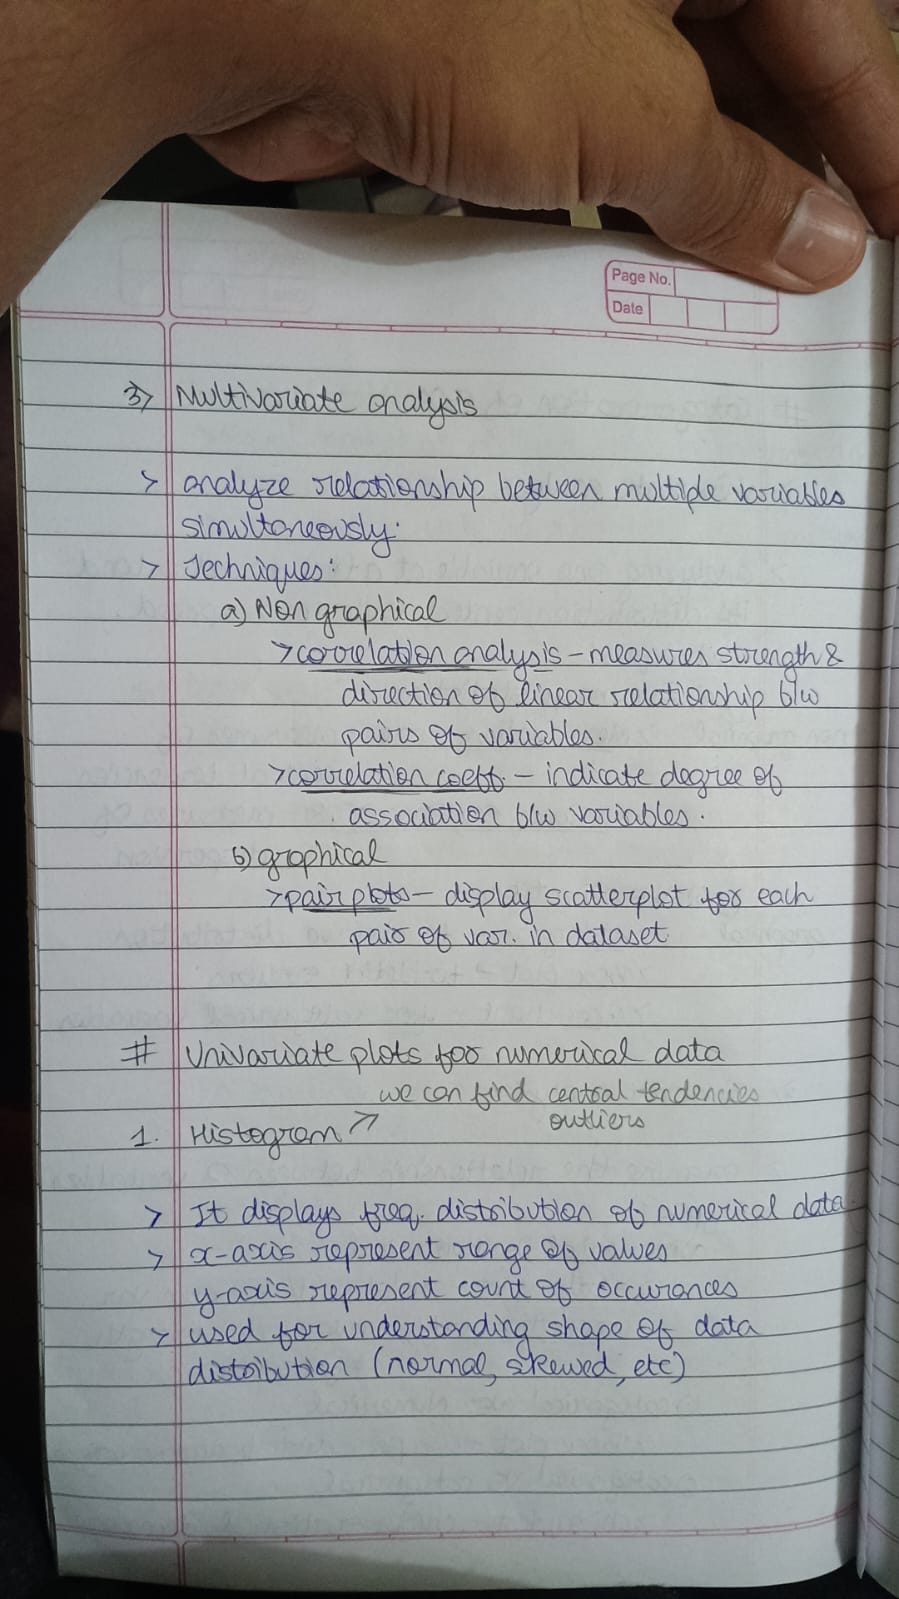 Page No.
Date
3> Multivariate analysis
> analyze relationship between multiple variables
simultaneously.
> Techniques:
a) Non graphical
> correlation analysis - measures strength &
direction of linear relationship b/w
pairs of variables.
> correlation coeff. - indicate degree of
association b/w variables.
b) graphical
> pair plots - display scatterplot for each
pair of var. in dataset.
# Univariate plots for numerical data
we can find central tendencies
outliers
1. Histogram >
> It displays freq. distribution of numerical data
> x-axis represent range of values
y-axis represent count of occurances
> used for understanding shape of data
distribution (normal, skewed, etc)